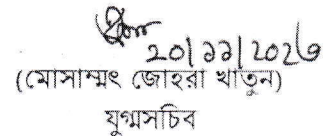 ২০/১১/২০২৫
(মোসাম্মৎ জোহরা খাতুন)
যুগ্মসচিব